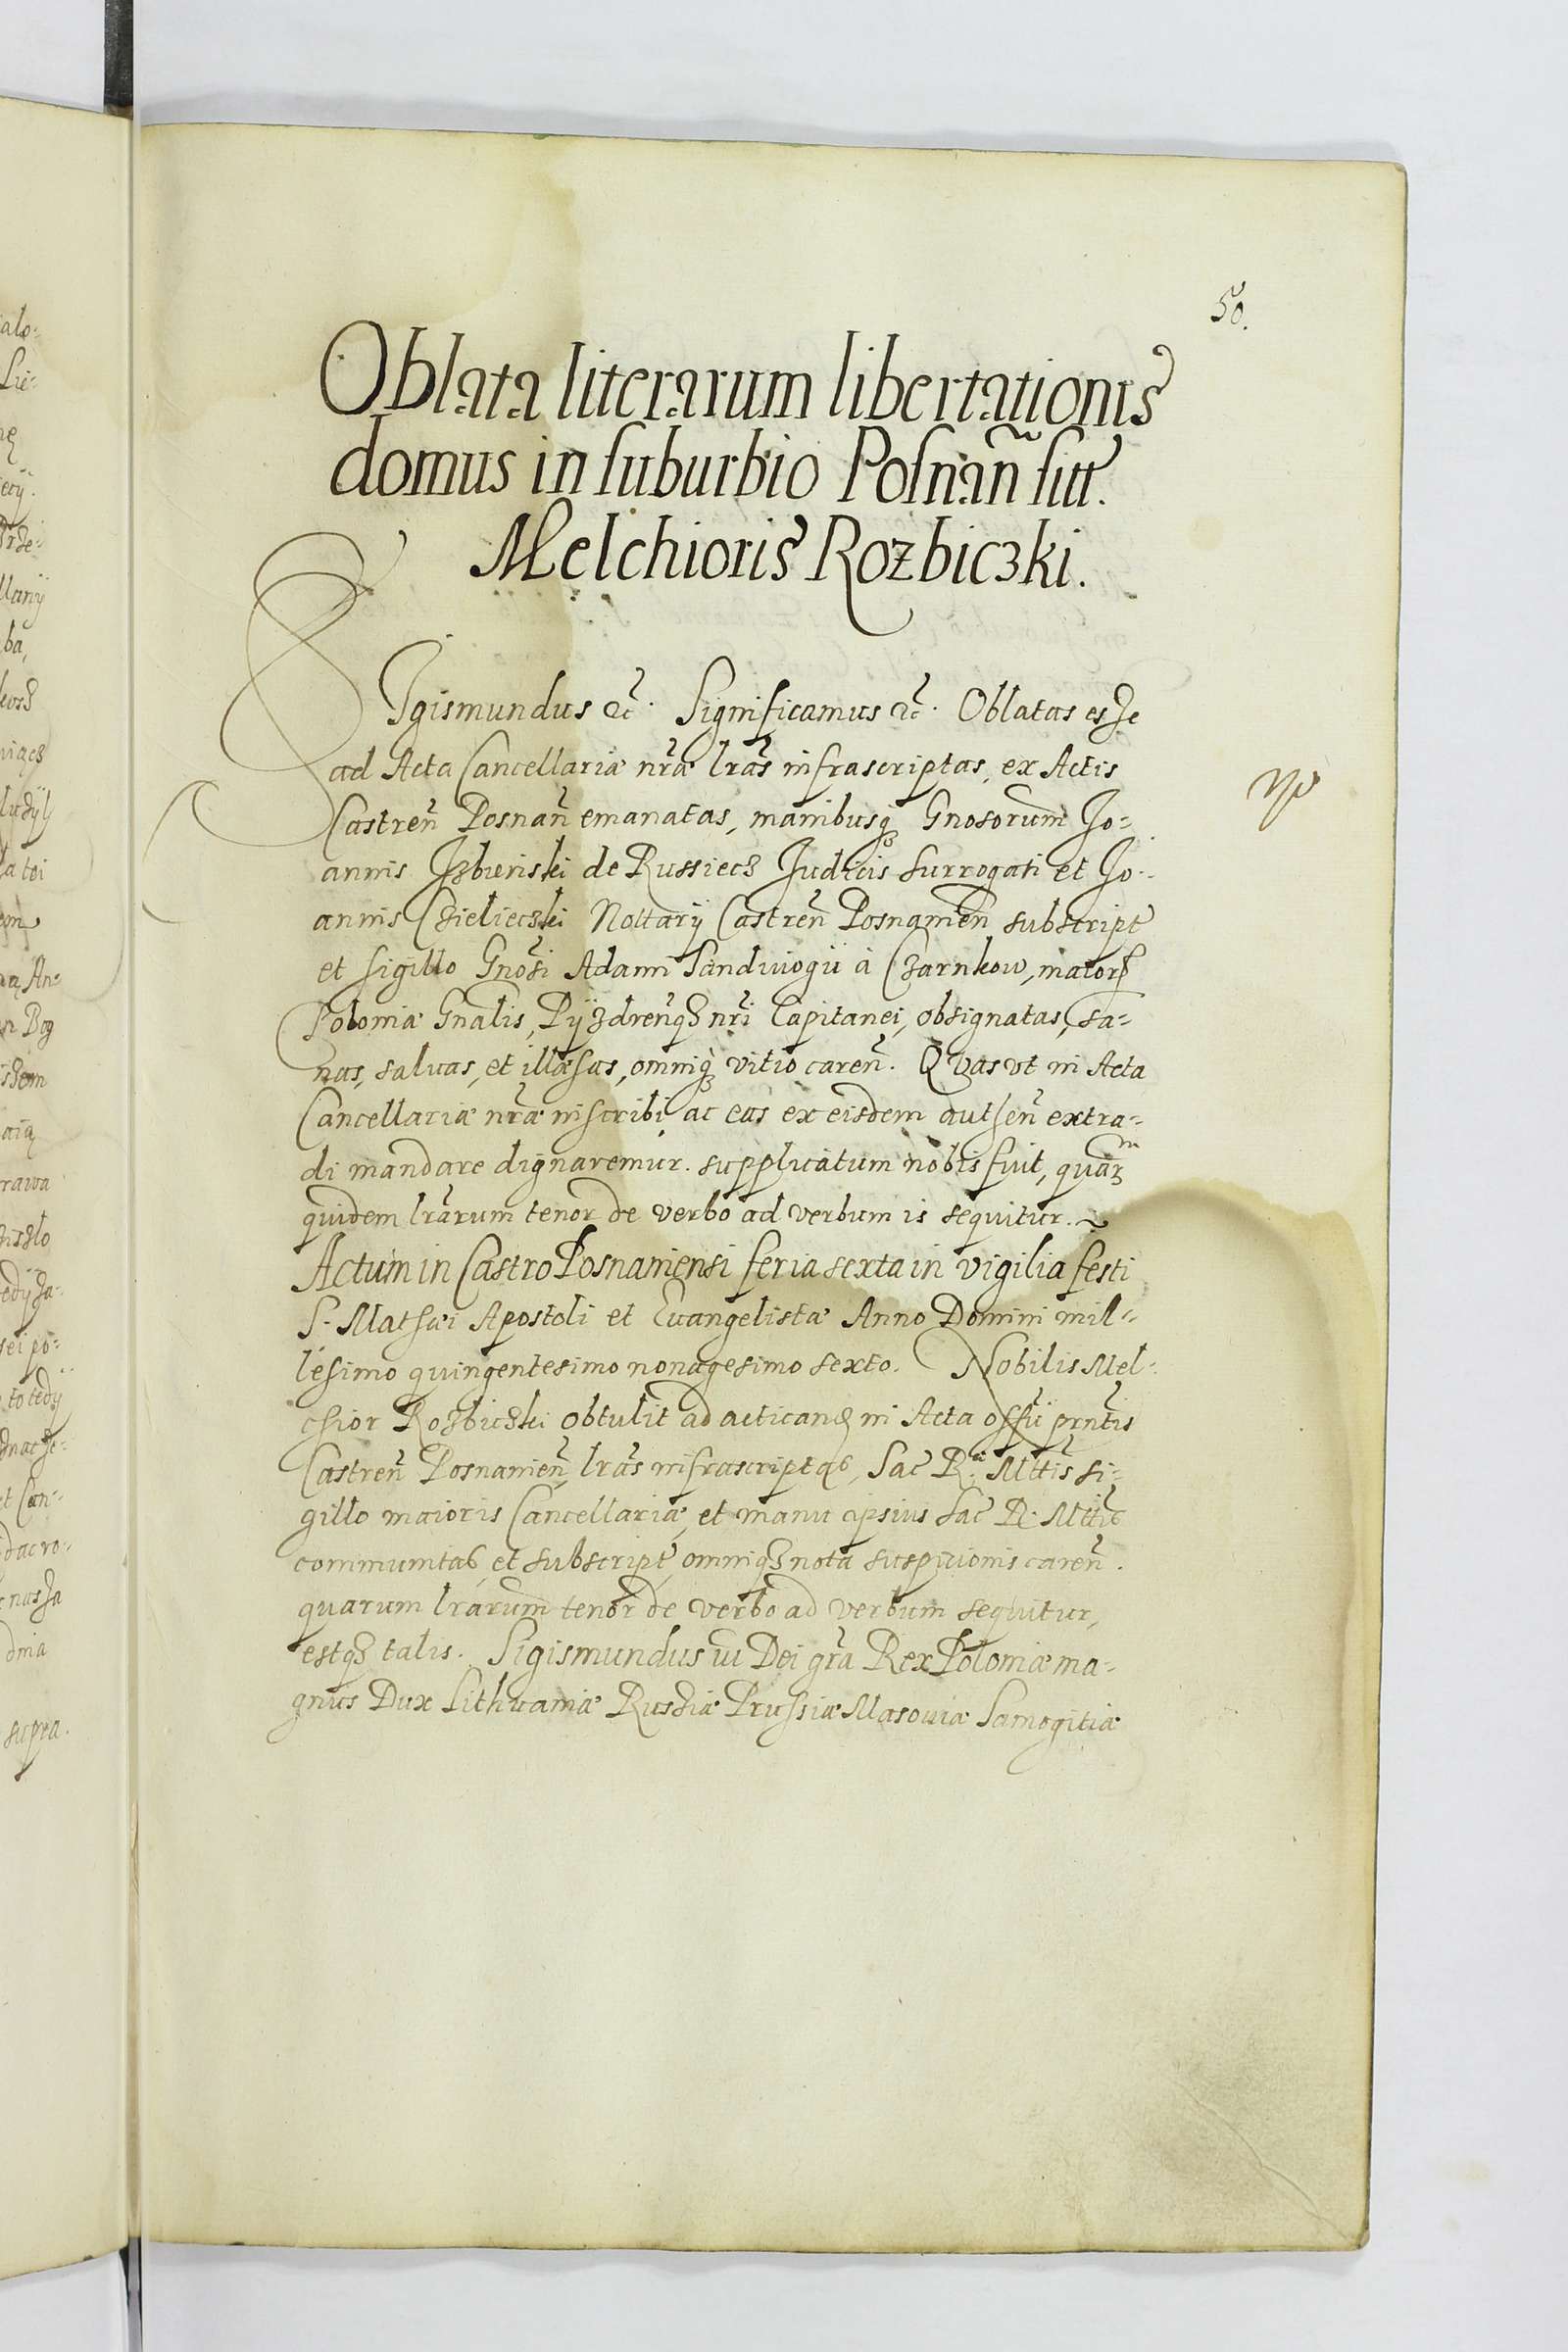 50.
Oblata literarum libertationis
domus in suburbio Posnan̄ sitt.
Melchioris Rozbiczki.
Sigismundus &c. Significamus &c. Oblatas esse
ad Acta Cancellariæ nr̄æ lr̄as infrascriptas, ex Actis
Castren̄ Posnan̄ emanatas, manibusq; Gnosorum Jo=
annis Jzbienski de Russiecz Judicis surrogati et Jo=
annis Czielieczki Nottarÿ Castren̄ Posnanien̄ subscript
et sigillo Gnosi Adami Sandiuogii à Czarnkow, maioris
Poloniæ Gnalis, Pÿzdren̄q3 nr̄i Capitanei, obsignatas, sa=
nas, saluas, et illæsas, omniq; vitio caren̄. Quas vt in Acta
Cancellariæ nr̄æ inscribi ac eas ex eisdem authen̄ extra=
di mandare dignaremur. supplicatum nobis fuit, quar̄
quidem lr̄arum tenor de verbo ad verbum is sequitur.
Actum in Castro Posnaniensi feria sexta in vigilia festi
S. Mathæi Apostoli et Euangelistæ Anno Domini mil=
lesimo quingentesimo nonagesimo sexto. Nobilis Mel=
chior Rozbiczki obtulit ad acticand in Acta offii prn̄tis
Castren̄ Posnanien̄, lr̄as infrascriptas, Sac R. Mttis si=
gillo maioris Cancellariæ, et manu ipsius Sac R. Mttis
communitas, et subscript, omniq3 nota suspicionis caren̄.
quarum lr̄arum tenor de verbo ad verbum sequitur,
estq3 talis. Sigismundus iii Dei gr̄a Rex Poloniæ ma=
gnus Dux Lithuaniæ Russiæ Prussiæ Masouiæ Samogitiæ